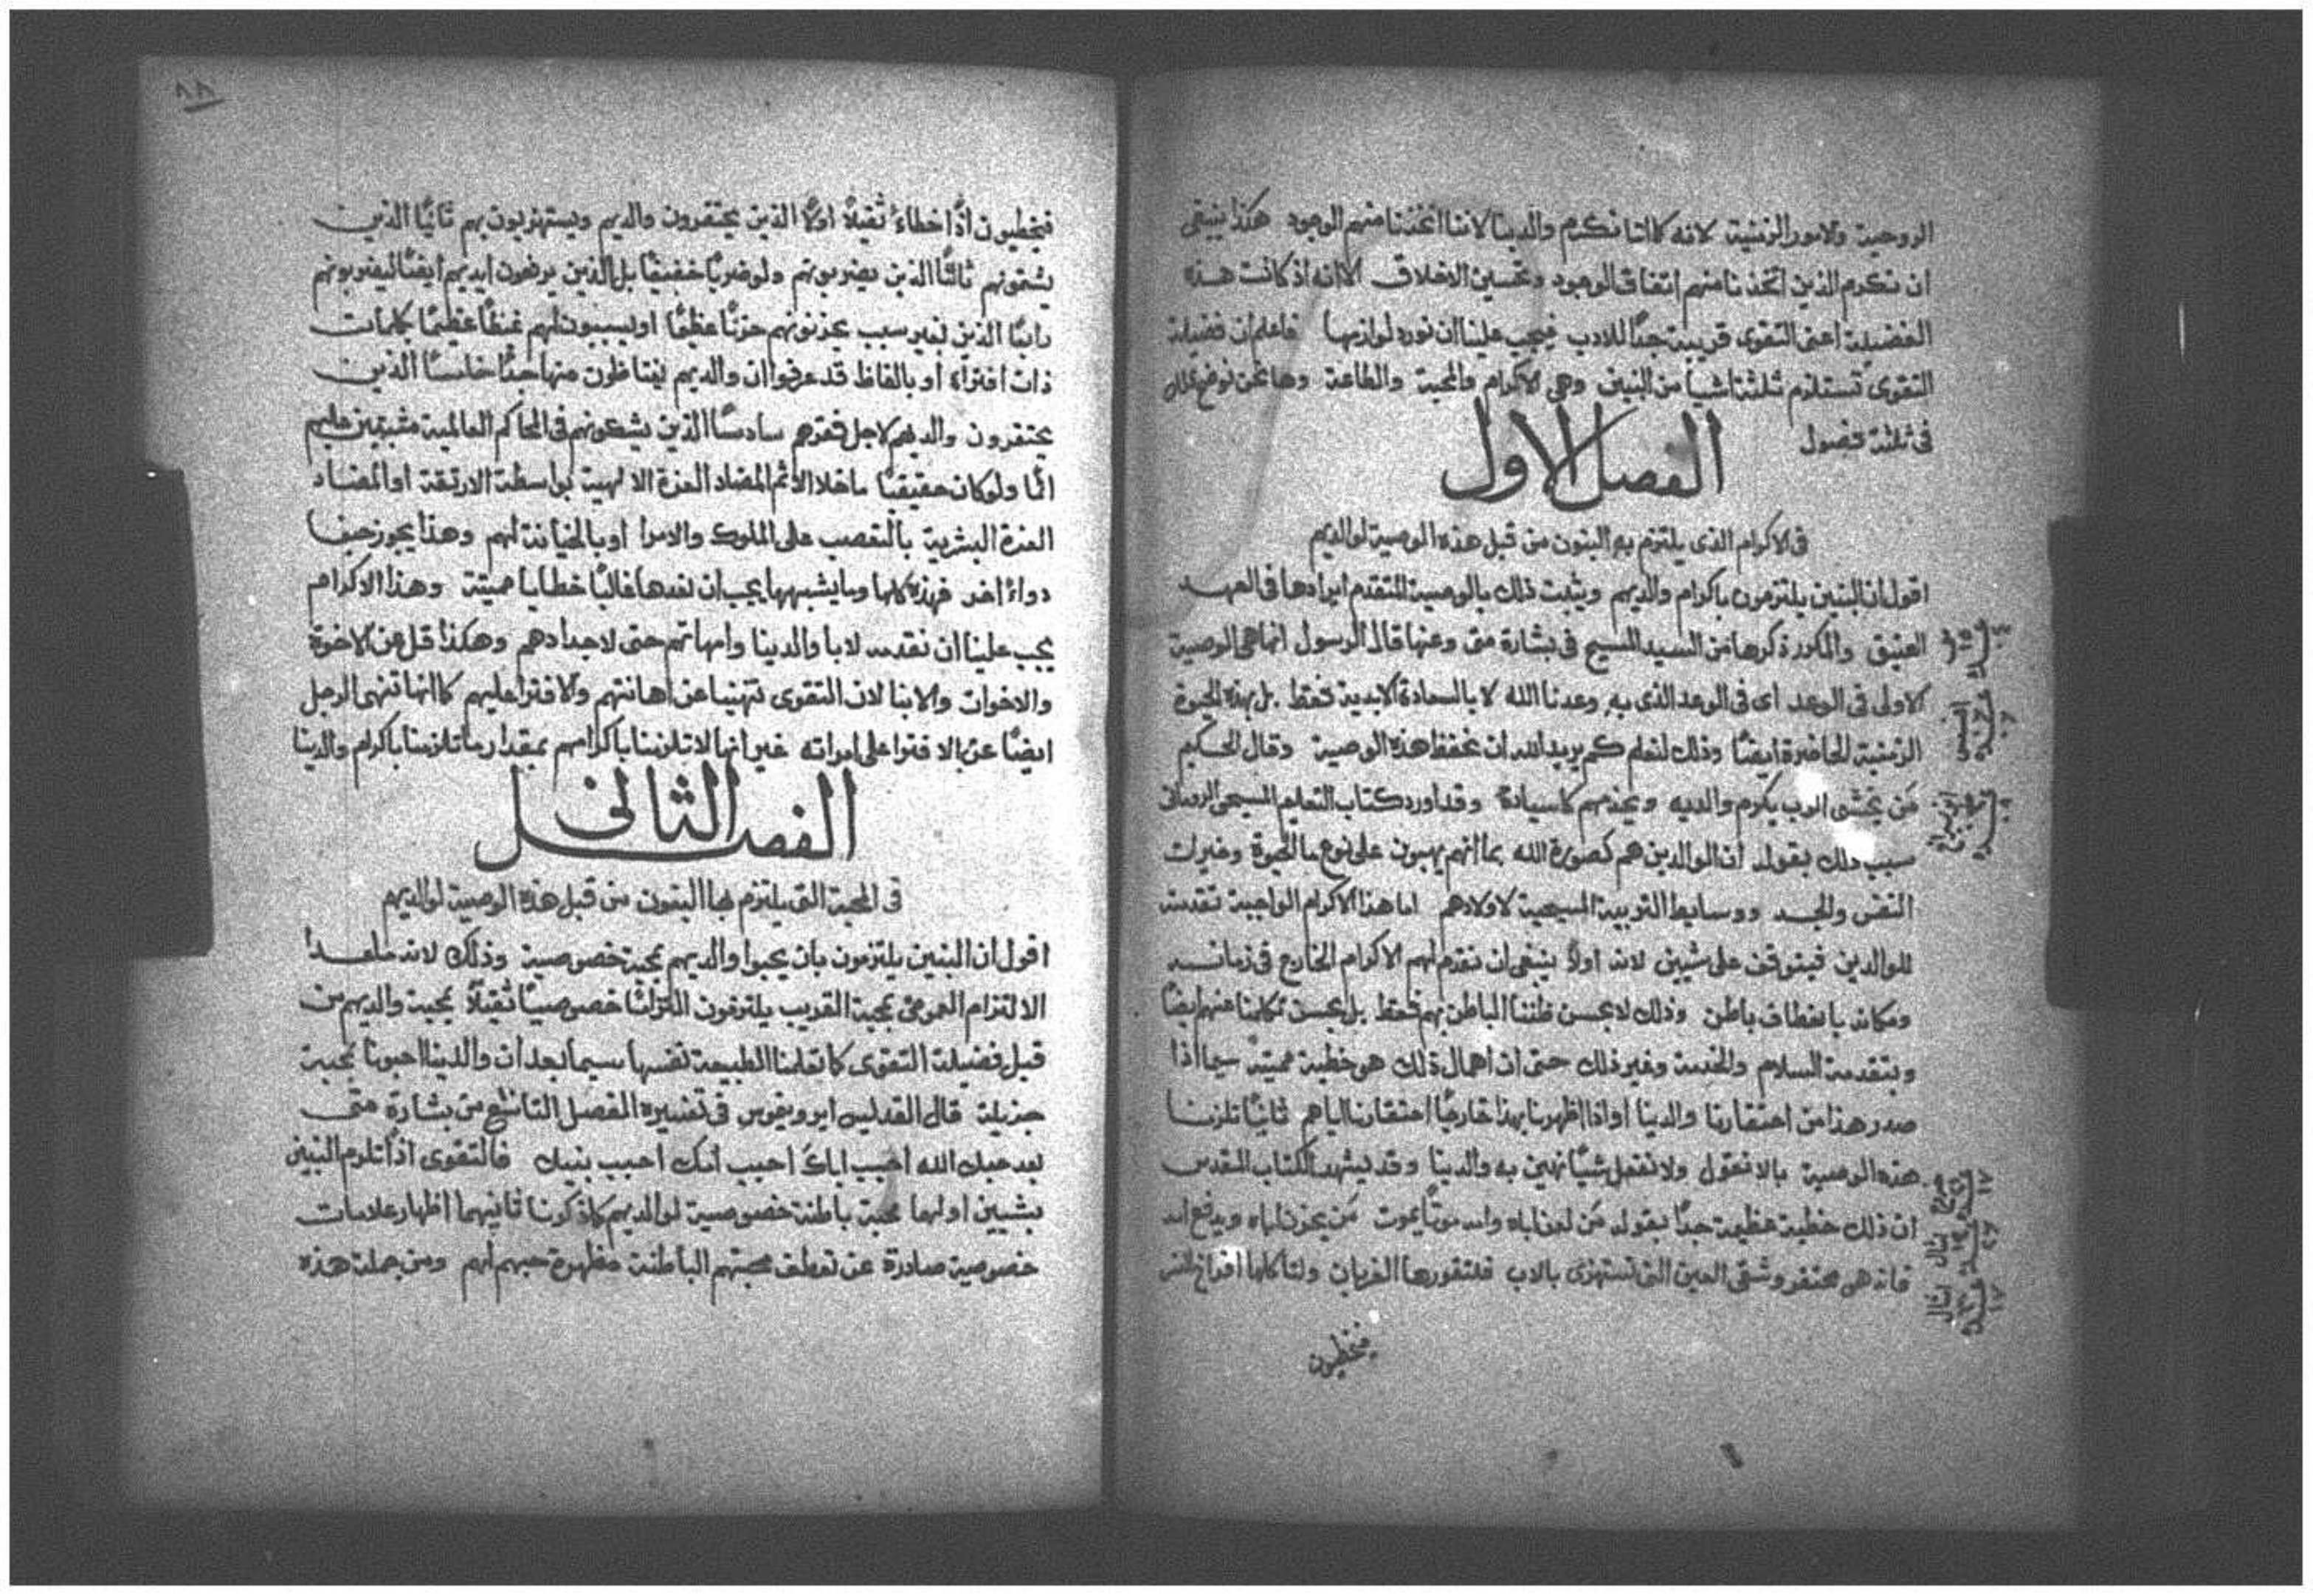 الروحية ولامور الزمنية لانه كما اننا نكرم والدينا لاننا اتخذنا منهم الوجود هكذا ينبغي
ان نكرم الذين اتخذنا منهم اتفاق الوجود وتحسين الاخلاق الا انه اذ كانت هذه
الفضيلة اعني التقوى قريبة جدًا للادب فيجب علينا ان نورد لوازمها فاعلم ان فضيلة
التقوى تستلزم ثلثة اشيا من البنين وهي الاكرام والمحبة والطاعة وها نحن نوضح ذلك
في ثلثة فصول
الفصل الاول
في الاكرام الذي يلتزم به البنون من قبل هذه الوصية لوالديهم
اقول ان البنين يلتزمون باكرام والديهم ويثبت ذلك بالوصية المتقدم ايرادها في العهد
العتيق والمكرر ذكرها من السيد المسيح في بشارة متى وعنها قال الرسول انما هي الوصية
الاولى في الوعد اي في الوعد الذي به وعدنا الله لا بالسعادة الابدية فقط بل بهذه الحيوة
الزمنية الحاضرة ايضًا وذلك لنعلم كم يريد الله ان نحفظ هذه الوصية وقال الحكيم
مَن يخشى الرب يكرم والديه ويخدمهم كاسيادة وقد اورد كتاب التعليم المسيحي الروماني
سبب ذلك بقوله ان الوالدين هم كصورة الله بما انهم يهبون على نوع ما الحيوة وخيرات
النفس والجسد ووسايط التربية المسيحية لاولادهم اما هذا الاكرام الواجبة تقدمته
للوالدين فيتوقف على شيين لانه اولًا ينبغي ان نقدم لهم الاكرام الخارج في زمانه
ومكانه بانعطاف باطن وذلك لا بحسن ظننا الباطن بهم فقط بل بحسن تكلمنا عنهم ايضًا
وبتقدمة السلام والخدمة وغير ذلك حتى ان اهمال ذلك هو خطية مميتة سيما اذا
صدر هذا من احتقارنا والدينا او اذا اظهرنا بهذا خارجًا احتقارنا اياهم ثانيًا تلزمنا
هذه الوصية بالا نقول ولا نفعل شيًا نهين به والدينا وقد يشهد الكتاب المقدس
ان ذلك خطية عظيمة جدًا بقوله مَن لعن اباه وامه موتًا يموت مَن يحزن اباه ويدفع امه
فانه هي محتقر وشقي العين التي تستهزي بالاب فلتقورها الغربان ولتاكلها افراخ النسر
فيخطيون
فيخطيون اذًا خطاءً ثقيلًا اولًا الذين يحتقرون والديهم ويستهزيون بهم ثانيًا الذين
يشتمونهم ثالثًا الذين يضربونهم ولو ضربًا خفيفًا بل الذين يرفعون ايديهم ايضًا ليضربونهم
رابعًا الذين لغير سبب يحزنونهم حزنًا عظيمًا او يسببون لهم غيظًا عظيمًا بكلمات
ذات افتراء او بالفاظ قد عرفوا ان والديهم يغتاظون منها جدًا خامسًا الذين
يحتقرون والديهم لاجل فقرهم سادسًا الذين يشكونهم في المحاكم العالمية مثبتين عليهم
اثمًا ولو كان حقيقيًا ما خلا الاثم المضاد العزة الالهية بواسطة الارتقة او المضاد
العزة البشرية بالتعصب على الملوك والامرا او بالخيانة لهم وهذا يجوز حيثما
دواء اخر فهذه كلها وما يشبهها يجب ان نعدها غالبًا خطايا مميتة وهذا الاكرام
يجب علينا ان نقدمه لابا والدينا وامهاتهم حتى لاجدادهم وهكذا قل عن الاخوة
والاخوات والابنا لان التقوى تنهينا عن اهانتهم والافترا عليهم كما انها تنهى الرجل
ايضًا عن الافترا على امراته غير انها لا تلزمنا باكرامهم بمقدار ما تلزمنا باكرام والدينا
الفصل الثاني
في المحبة التي يلتزم بها البنون من قبل هذه الوصية لوالديهم
اقول ان البنين يلتزمون بان يحبوا والديهم بمحبة خصوصية وذلك لانه ماعدا
الالتزام العمومي بمحبة القريب يلتزمون التزامًا خصوصيًا ثقيلًا بمحبة والديهم من
قبل فضيلة التقوى كما تعلمنا الطبيعة نفسها سيما بعد ان والدينا احبونا بمحبة
جزيلة قال القديس ايرونيموس في تفسيره الفصل التاسع من بشارة متى
بعد حبك الله احبب اباك احبب امك احبب بنيك فالتقوى اذًا تلزم البنين
بشيين اولهما محبة باطنة خصوصية لوالديهم كما ذكرنا ثانيهما اظهار علامات
خصوصية صادرة عن تعطف محبتهم الباطنة مظهرة حبهم لهم ومن جملة هذه